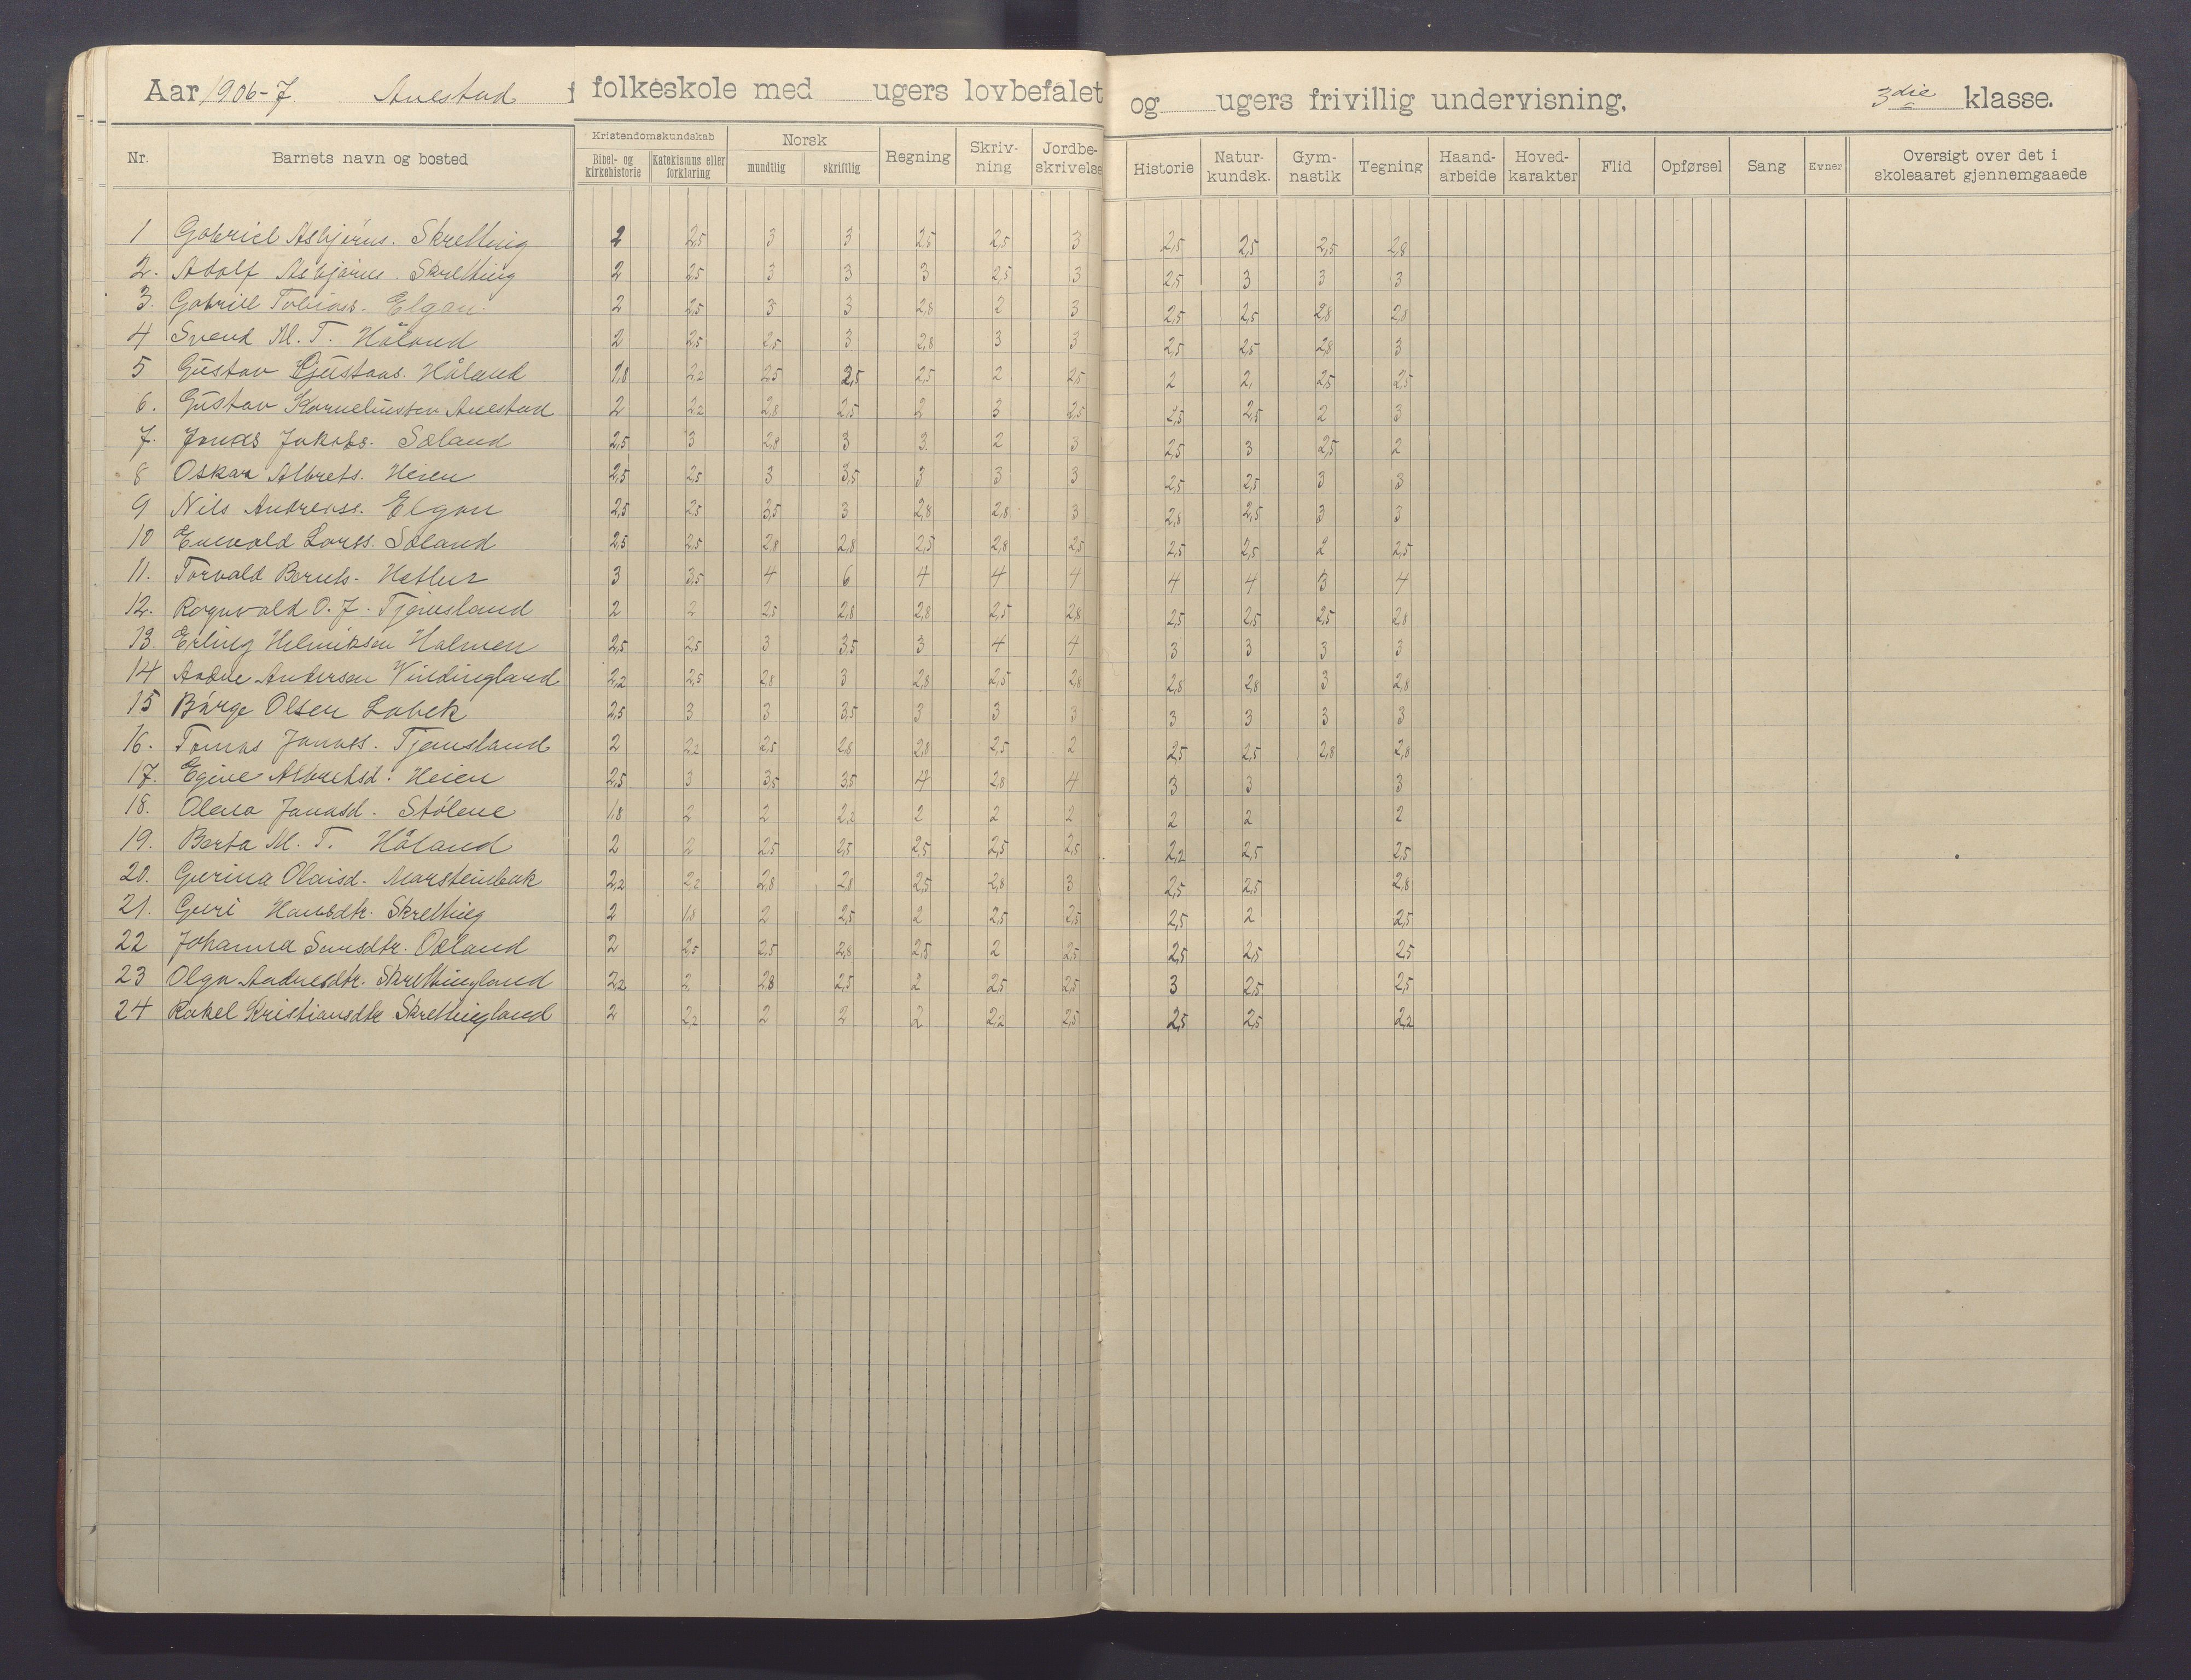 Aar 1906-7. Auestad f folkeskole med ugers lovbefalet og ugers frivillig undervisning. 3die klasse.
Kristendomskundskab Norsk
Nr. Barnets navn og bosted Bibel- og kirkehistorie Katekismus eller forklaring mundtlig skriftlig Regning Skriv-ning Jordbe-skrivelse Historie Natur-kundsk. Gym-nastik Tegning Haand-arbeide Hoved-karakter Flid Opførsel Sang Evner Oversigt over det i skoleaaret gjennemgaaede
1 Gabriel Asbjørns. Skretting 2 2,5 3 3 2,5 2,5 3 2,5 2,5 2,5 2,8
2. Adolf Asbjørns. Skretting 2 2,5 3 3 3 2,5 3 2,5 3 3 3
3. Gabriel Tobias. Elgan. 2 2,5 3 3 2,8 2 3 2,5 2,5 2,8 2,8
4 Svend M. T. Håland 2 2,5 2,5 3 2,8 3 3 2,5 2,5 2,8 3
5 Gustav Gustavs. Håland 1,8 2,2 2,5 2,5 2,5 2 2,5 2 2, 2,5 2,5
6. Gustav Korneliussen Auestad 2 2,2 2,8 2,5 2 3 2,5 2,5 2,5 2 3
7. Jonas Jakobs. Søland 2,5 3 2,8 3 3. 2 3 2,5 3 2,5 2
8 Oskar Albrets. Heien 2,5 2,5 3 3,5 3 3 3 2,5 2,5 3 3
9 Nils Andreass. Elgan 2,5 2,5 3,5 3 2,8 2,8 3 2,8 2,5 3 3
10 Enevald Larss. Søland 2,5 2,5 2,8 2,8 2,5 2,8 2,5 2,5 2,5 2 2,5
11. Torvald Bernts. Hetlus 3 3,5 4 6 4 4 4 4 4 3 4
12. Ragnvald O. J. Tjensland 2 2 2,5 2,8 2,8 2,5 2,8 2,5 2,5 2,5 2,8
13. Erling Helmiksen Holmen 2,5 2,5 3 3,5 3 4 4 3 3 3 3
14 Andersen Vindingland 2,2 2,5 2,8 3 2,8 2,5 2,8 2,8 2,8 3 2,8
15 Børge Olsen Lobek 2,5 3 3 3,5 3 3 3 3 3 3 3
16. Tomas Jonass. Tjensland 2 2,2 2,5 2,8 2,8 2,5 2 2,5 2,5 2,8 2,8
17. Egine Albretsd. Heien 2,5 3 3,5 3,5 4 2,8 4 3 3 3
18. Olena Jonasd. Stølene 1,8 2 2 2,2 2 2 2 2 2 2
19. Berta M. T. Håland 2 2 2,5 2,5 2,5 2,5 2,5 2,2 2,5 2,5
20. Gurina Olaisd. Marsteinbak 2,2 2,2 2,8 2,8 2,5 2,8 3 2,5 2,5 2,8
21. Guri Hansdtr. Skretting 2 1,8 2 2,5 2 2,5 2,5 2,5 2 2,5
22 Johanna 2 2,5 2,5 2,8 2,5 2 2,5 2,5 2,5 2,5
23 Olga Andreasdtr. Skrettingland 2,2 2 2,8 2,5 2 2,5 2,5 3 2,5 2,5
24 Rakel Kristiansdtr Skrettingland 2 2,2 2 2 2 2,2 2,5 2,5 2,5 2,2